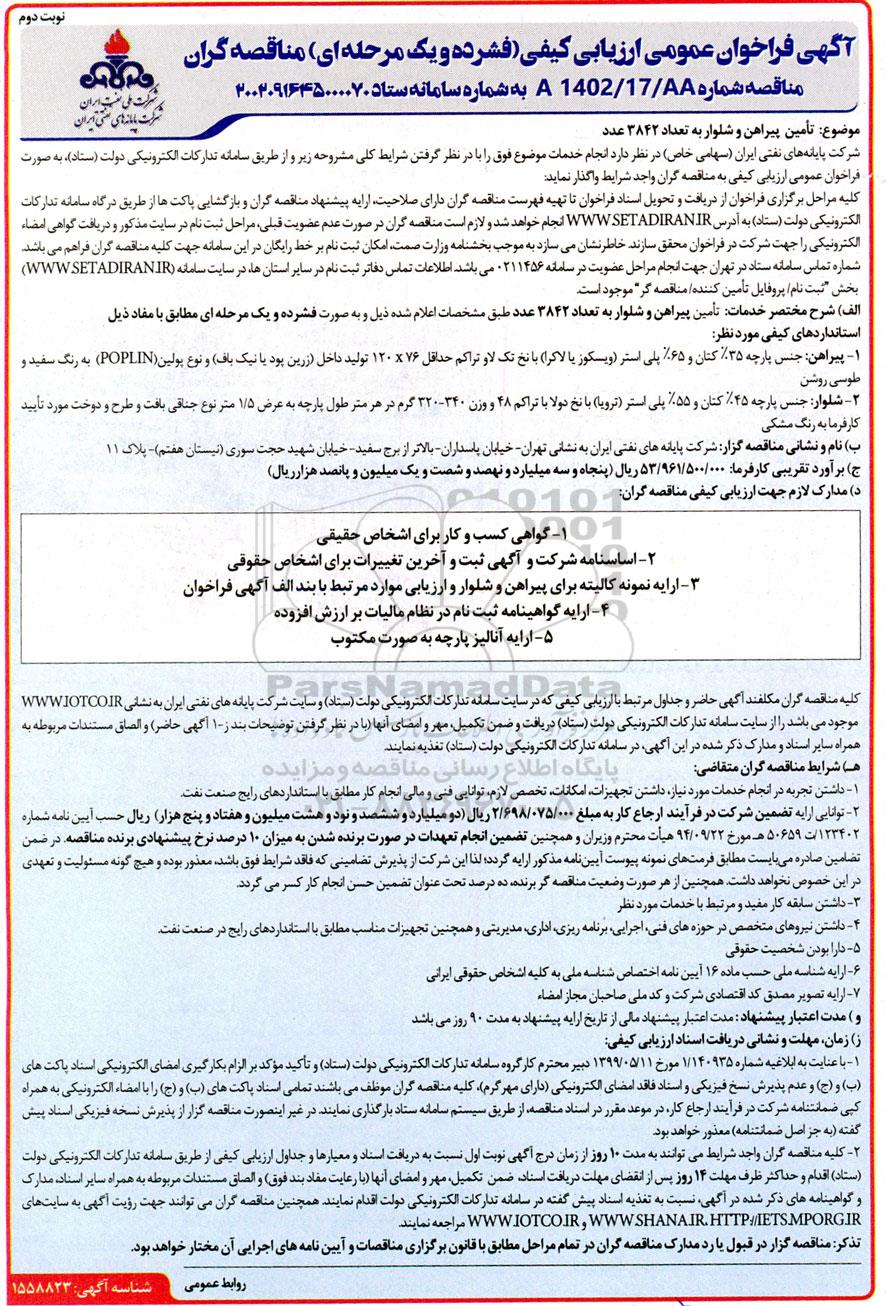 نوبت دوم
آگهی فراخوان عمومی ارزیابی کیفی(فشرده و یک مرحله ای) مناقصه گران
مناقصه شماره A 1402/17/AA به شماره سامانه ستاد ۲۰۰۲۰۹۱۶۴۵۰۰۰۰۷۰
شرکت ملی نفت ایران
شرکت پایانه‌های نفتی ایران
موضوع: تأمین پیراهن و شلوار به تعداد ۳۸۴۲ عدد
شرکت پایانه‌های نفتی ایران (سهامی خاص) در نظر دارد انجام خدمات موضوع فوق را با در نظر گرفتن شرایط کلی مشروحه زیر و از طریق سامانه تدارکات الکترونیکی دولت (ستاد)، به صورت
فراخوان عمومی ارزیابی کیفی به مناقصه گران واجد شرایط واگذار نماید:
کلیه مراحل برگزاری فراخوان از دریافت و تحویل اسناد فراخوان تا تهیه فهرست مناقصه گران دارای صلاحیت، ارایه پیشنهاد مناقصه گران و بازگشایی پاکت ها از طریق درگاه سامانه تدارکات
الکترونیکی دولت (ستاد) به آدرس WWW.SETADIRAN.IR انجام خواهد شد و لازم است مناقصه گران در صورت عدم عضویت قبلی، مراحل ثبت نام در سایت مذکور و دریافت گواهی امضاء
الکترونیکی را جهت شرکت در فراخوان محقق سازند. خاطرنشان می سازد به موجب بخشنامه وزارت صمت، امکان ثبت نام بر خط رایگان در این سامانه جهت کلیه مناقصه گران فراهم می باشد.
شماره تماس سامانه ستاد در تهران جهت انجام مراحل عضویت در سامانه ۰۲۱۱۴۵۶ می باشد. اطلاعات تماس دفاتر ثبت نام در سایر استان ها، در سایت سامانه (WWW.SETADIRAN.IR)
بخش "ثبت نام/ پروفایل تأمین کننده/ مناقصه گر" موجود است.
الف) شرح مختصر خدمات: تأمین پیراهن و شلوار به تعداد ۳۸۴۲ عدد طبق مشخصات اعلام شده ذیل و به صورت فشرده و یک مرحله ای مطابق با مفاد ذیل
استانداردهای کیفی مورد نظر:
۱- پیراهن: جنس پارچه ۳۵٪ کتان و ۶۵٪ پلی استر (ویسکوز یا لاکرا) با نخ تک لا و تراکم حداقل ۷۶ x ۱۲۰ تولید داخل (زرین پود یا نیک باف) و نوع پولین(POPLIN) به رنگ سفید و
طوسی روشن
۲- شلوار: جنس پارچه ۴۵٪ کتان و ۵۵٪ پلی استر (ترویا) با نخ دولا با تراکم ۴۸ و وزن ۳۴۰-۳۲۰ گرم در هر متر طول پارچه به عرض ۱/۵ متر نوع جناقی بافت و طرح و دوخت مورد تأیید
کارفرما به رنگ مشکی
ب) نام و نشانی مناقصه گزار: شرکت پایانه های نفتی ایران به نشانی تهران- خیابان پاسداران- بالاتر از برج سفید- خیابان شهید حجت سوری (نیستان هفتم)- پلاک ۱۱
ج) برآورد تقریبی کارفرما: ۵۳/۹۶۱/۵۰۰/۰۰۰ ریال (پنجاه و سه میلیارد و نهصد و شصت و یک میلیون و پانصد هزار ریال)
د) مدارک لازم جهت ارزیابی کیفی مناقصه گران:
۱- گواهی کسب و کار برای اشخاص حقیقی
۲- اساسنامه شرکت و آگهی ثبت و آخرین تغییرات برای اشخاص حقوقی
۳- ارایه نمونه کالیته برای پیراهن و شلوار و ارزیابی موارد مرتبط با بند الف آگهی فراخوان
۴- ارایه گواهینامه ثبت نام در نظام مالیات بر ارزش افزوده
۵- ارایه آنالیز پارچه به صورت مکتوب
ParsNamadData
پایگاه اطلاع رسانی مناقصه و مزایده
کلیه مناقصه گران مکلفند آگهی حاضر و جداول مرتبط با ارزیابی کیفی که در سایت سامانه تدارکات الکترونیکی دولت (ستاد) و سایت شرکت پایانه های نفتی ایران به نشانی WWW.IOTCO.IR
موجود می باشد را از سایت سامانه تدارکات الکترونیکی دولت (ستاد) دریافت و ضمن تکمیل، مهر و امضای آنها (با در نظر گرفتن توضیحات بند ز-۱ آگهی حاضر) و الصاق مستندات مربوطه به
همراه سایر اسناد و مدارک ذکر شده در این آگهی، در سامانه تدارکات الکترونیکی دولت (ستاد) تغذیه نمایند.
هـ) شرایط مناقصه گران متقاضی:
۱- داشتن تجربه در انجام خدمات مورد نیاز، داشتن تجهیزات، امکانات، تخصص لازم، توانایی فنی و مالی انجام کار مطابق با استانداردهای رایج صنعت نفت.
۲- توانایی ارایه تضمین شرکت در فرآیند ارجاع کار به مبلغ ۲/۶۹۸/۰۷۵/۰۰۰ ریال (دو میلیارد و ششصد و نود و هشت میلیون و هفتاد و پنج هزار) ریال حسب آیین نامه شماره
۱۲۳۴۰۲/ت ۵۰۶۵۹ هـ مورخ ۹۴/۰۹/۲۲ هیأت محترم وزیران و همچنین تضمین انجام تعهدات در صورت برنده شدن به میزان ۱۰ درصد نرخ پیشنهادی برنده مناقصه. در ضمن
تضامین صادره می‌بایست مطابق فرمت‌های نمونه پیوست آیین‌نامه مذکور ارایه گردد؛ لذا این شرکت از پذیرش تضامینی که فاقد شرایط فوق باشد، معذور بوده و هیچ گونه مسئولیت و تعهدی
در این خصوص نخواهد داشت. همچنین از هر صورت وضعیت مناقصه گر برنده، ده درصد تحت عنوان تضمین حسن انجام کار کسر می گردد.
۳- داشتن سابقه کار مفید و مرتبط با خدمات مورد نظر
۴- داشتن نیروهای متخصص در حوزه های فنی، اجرایی، برنامه ریزی، اداری، مدیریتی و همچنین تجهیزات مناسب مطابق با استانداردهای رایج در صنعت نفت.
۵- دارا بودن شخصیت حقوقی
۶- ارایه شناسه ملی حسب ماده ۱۶ آیین نامه اختصاص شناسه ملی به کلیه اشخاص حقوقی ایرانی
۷- ارایه تصویر مصدق کد اقتصادی شرکت و کد ملی صاحبان مجاز امضاء
و) مدت اعتبار پیشنهاد: مدت اعتبار پیشنهاد مالی از تاریخ ارایه پیشنهاد به مدت ۹۰ روز می باشد
ز) زمان، مهلت و نشانی دریافت اسناد ارزیابی کیفی:
۱- با عنایت به ابلاغیه شماره ۱/۱۴۰۹۳۵ مورخ ۱۳۹۹/۰۵/۱۱ دبیر محترم کارگروه سامانه تدارکات الکترونیکی دولت (ستاد) و تأکید مؤکد بر الزام بکارگیری امضای الکترونیکی اسناد پاکت های
(ب) و (ج) و عدم پذیرش نسخ فیزیکی و اسناد فاقد امضای الکترونیکی (دارای مهر گرم)، کلیه مناقصه گران موظف می باشند تمامی اسناد پاکت های (ب) و (ج) را با امضاء الکترونیکی به همراه
کپی ضمانتنامه شرکت در فرآیند ارجاع کار، در موعد مقرر در اسناد مناقصه، از طریق سیستم سامانه ستاد بارگذاری نمایند. در غیر اینصورت مناقصه گزار از پذیرش نسخه فیزیکی اسناد پیش
گفته (به جز اصل ضمانتنامه) معذور خواهد بود.
۲- کلیه مناقصه گران واجد شرایط می توانند به مدت ۱۰ روز از زمان درج آگهی نوبت اول نسبت به دریافت اسناد و معیارها و جداول ارزیابی کیفی از طریق سامانه تدارکات الکترونیکی دولت
(ستاد) اقدام و حداکثر ظرف مهلت ۱۴ روز پس از انقضای مهلت دریافت اسناد، ضمن تکمیل، مهر و امضای آنها (با رعایت مفاد بند فوق) و الصاق مستندات مربوطه به همراه سایر اسناد، مدارک
و گواهینامه های ذکر شده در آگهی، نسبت به تغذیه اسناد پیش گفته در سامانه تدارکات الکترونیکی دولت اقدام نمایند. همچنین مناقصه گران می توانند جهت رؤیت آگهی به سایت‌های
WWW.SHANA.IR، HTTP://IETS.MPORG.IR و WWW.IOTCO.IR مراجعه نمایند.
تذکر: مناقصه گزار در قبول یا رد مدارک مناقصه گران در تمام مراحل مطابق با قانون برگزاری مناقصات و آیین نامه های اجرایی آن مختار خواهد بود.
روابط عمومی
شناسه آگهی: ۱۵۵۸۸۲۳